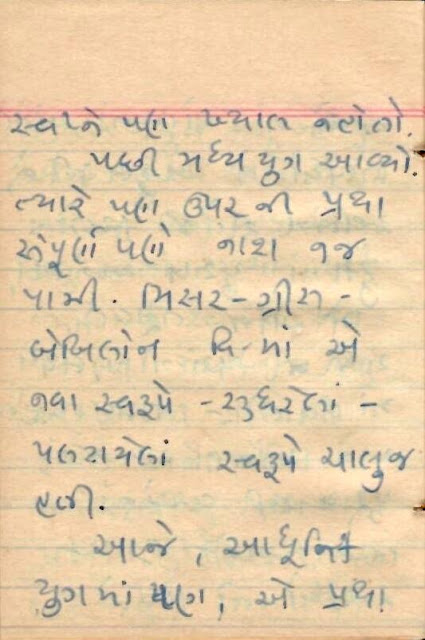 સ્વપ્ને પણ ખ્યાલ નહોતો.
પછી મધ્ય યુગ આવ્યો.
ત્યારે પણ ઉપરની પ્રથા
સંપૂર્ણપણે નાશ નજ
પામી. મિસર-ગ્રીસ-
બેબિલોન વિ.માં એ
નવા સ્વરૂપે - સુધરેલાં -
પલટાયેલાં સ્વરૂપે ચાલુજ
હતી.
આજે, આધૂનિક
યુગમાં પણ, એ પ્રથા